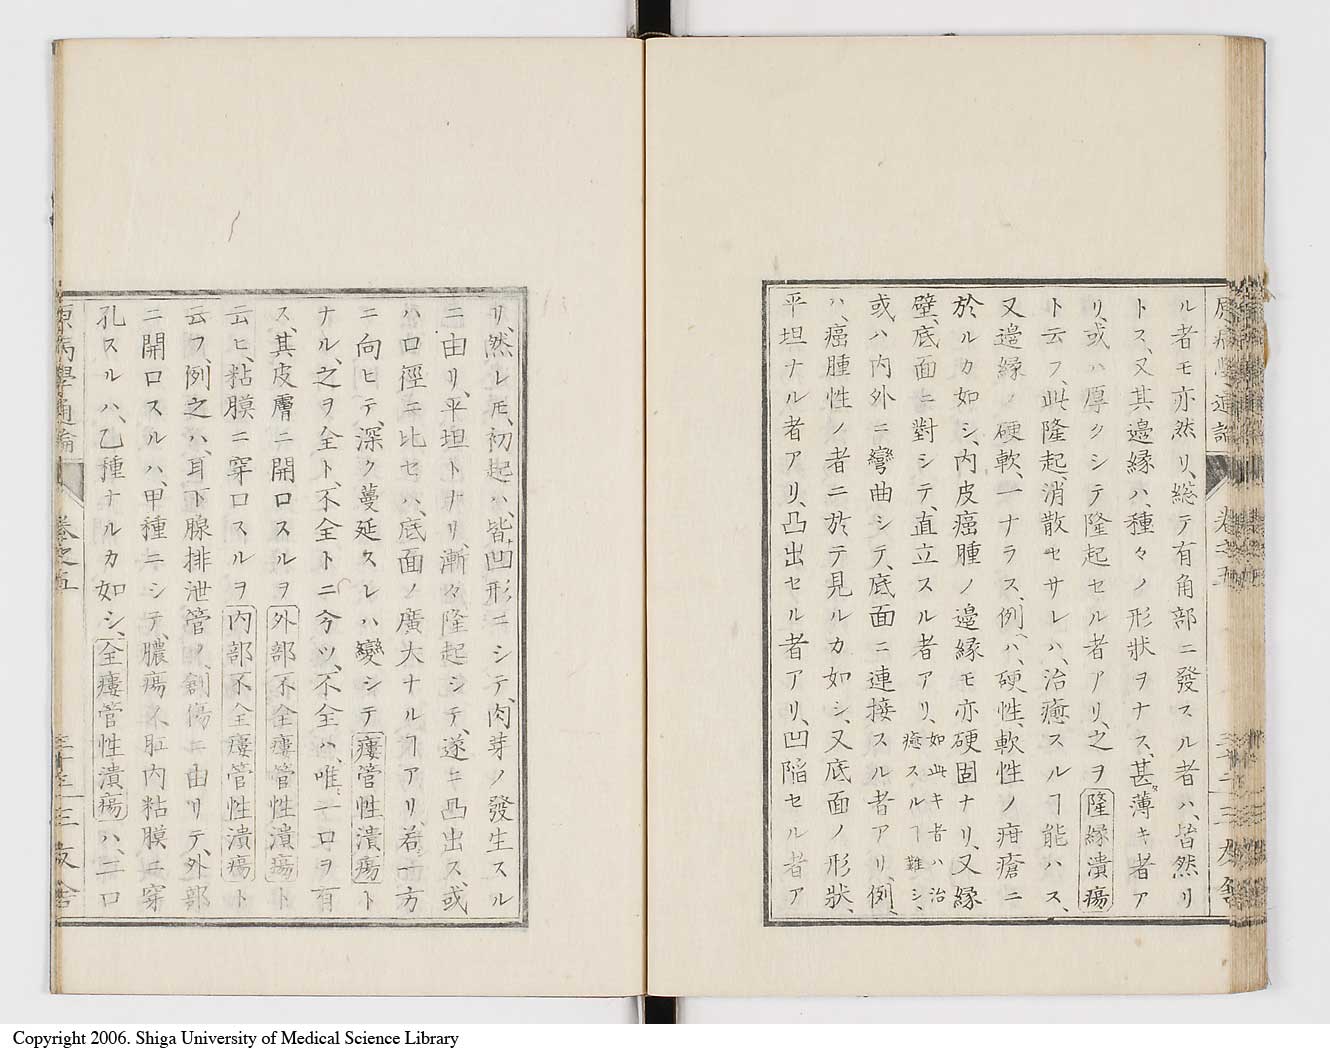 原病學通論
卷之五
三十二
三友舍
ル者モ亦然リ、總テ有角部ニ發スル者ハ、皆然リ
トス、又其邊縁ハ、種々ノ形狀ヲナス、甚薄キ者ア
リ、或ハ厚クシテ隆起セル者アリ、之ヲ隆縁潰瘍
ト云フ、此隆起、消散セサレハ、治癒スルヿ能ハス、
又邊縁ノ硬軟、一ナラス、例ハ、硬性、軟性ノ疳瘡ニ
於ルカ如シ、内皮癌腫ノ邊縁モ亦硬固ナリ、又縁
壁、底面ニ對シテ、直立スル者アリ、如此キ者ハ治
癒スルヿ難シ、
或ハ内外ニ彎曲シテ、底面ニ連接スル者アリ、例
ハ、癌腫性ノ者ニ於テ見ルカ如シ、又底面ノ形狀、
平坦ナル者アリ、凸出セル者アリ、凹陷セル者ア
リ、然レ𪜈、初起ハ、皆凹形ニシテ、肉芽ノ發生スル
ニ由リ、平坦トナリ、漸々隆起シテ、遂ニ凸出ス、或
ハ口徑ニ比セハ、底面ノ廣大ナルヿアリ、若一方
ニ向ヒテ、深ク蔓延スレハ變シテ瘻管性潰瘍ト
ナル、之ヲ全ト、不全トニ今ツ、不全ハ、唯一口ヲ有
ス、其皮膚ニ開口スルヲ外部不全瘻管性潰瘍ト
云ヒ、粘膜ニ穿口スルヲ内部不全瘻管性潰瘍ト
云フ、例之ハ、耳下腺排泄管ノ、創傷ニ由リテ、外部
ニ開口スルハ、甲種ニシテ、膿瘍ノ肛内粘膜ニ穿
孔スルハ、乙種ナルカ如シ、全瘻管性潰瘍ハ、二口
原病學通論
卷之五
三十三
三友舍
Copyright 2006. Shiga University of Medical Science Library